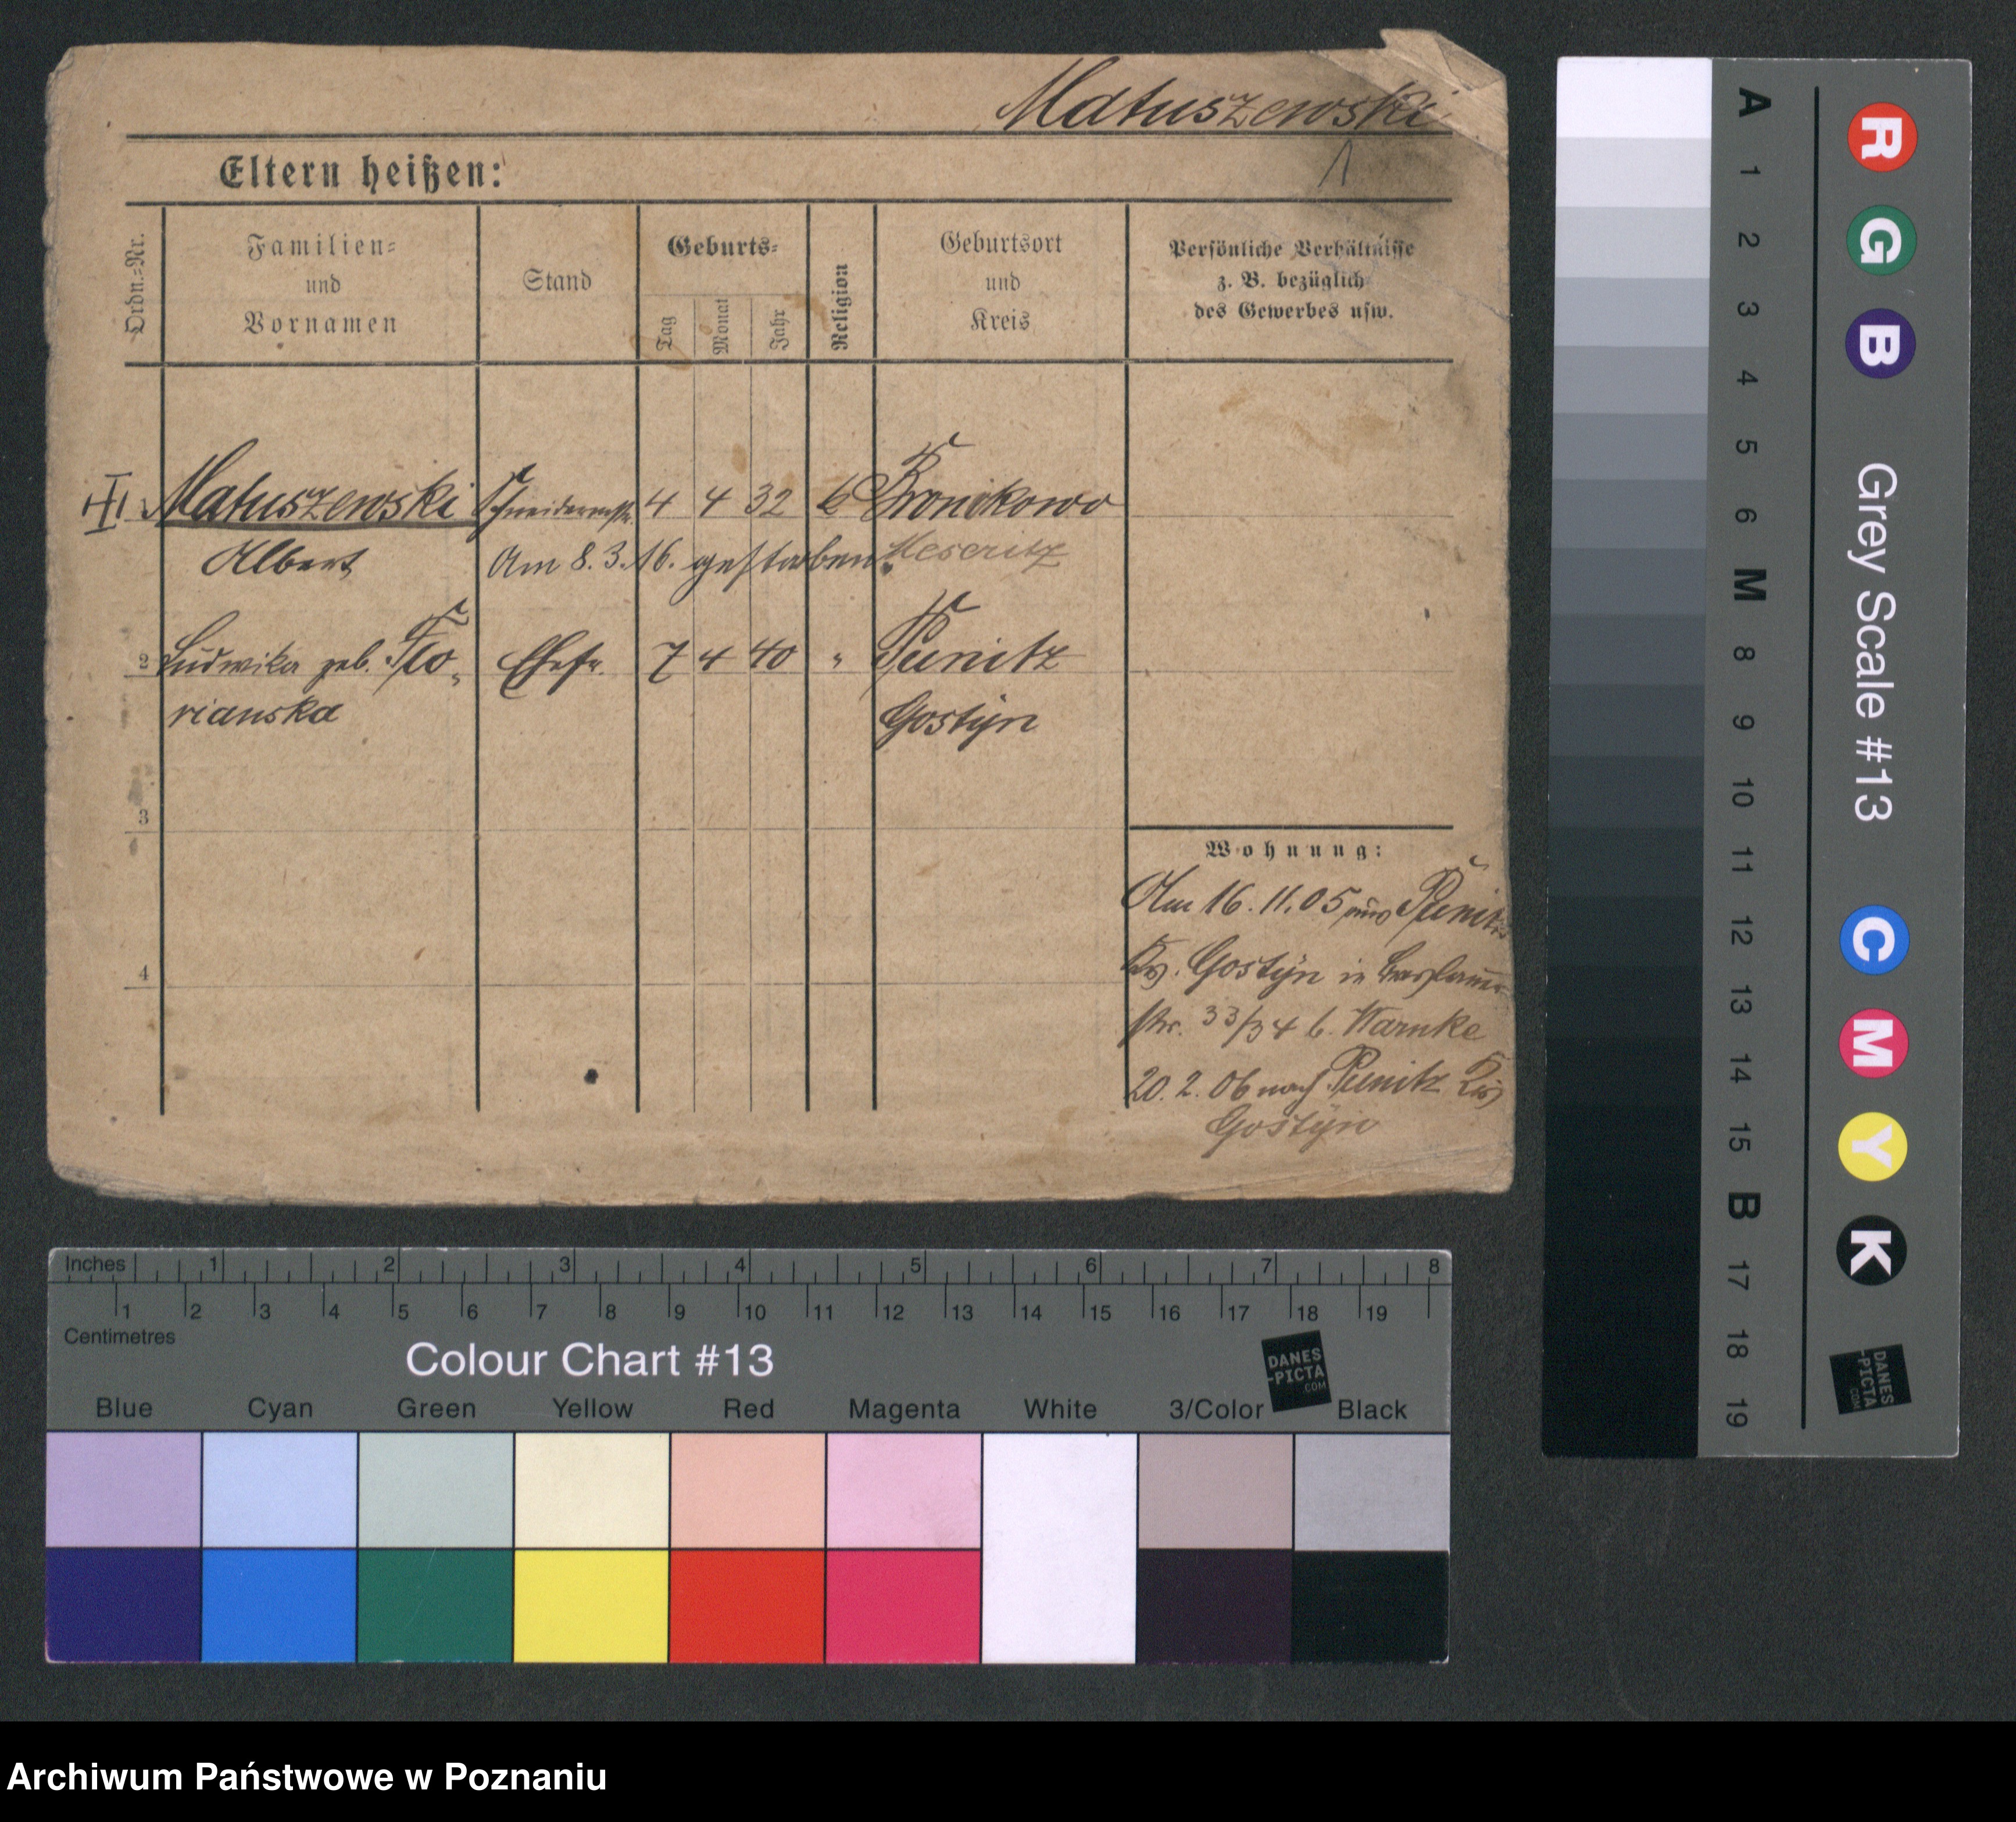 Matuszewski
1
Eltern heißen:
Ordn.-Nr.
Familien-
und
Vornamen
Stand
Geburts-
Tag
Monat
Jahr
Religion
Geburtsort
und
Kreis
Persönliche Verhältnisse
z. B. bezüglich
des Gewerbes usw.
1 Matuszewski Schneidermstr. 4 4 32 k Bronikowo
Albert Am 8.3.16. gestorben. Meseritz
2 Ludwika geb. Flo- Ehefr. 7 4 40 " Punitz
rianska Gostyn
3
4
Wohnung:
Am 16.11.05 aus Punitz
Krs. Gostyn in
str. 33/34 b. Warnke
20.2.06 nach Punitz Krs
Gostyn
Inches 1 2 3 4 5 6 7 8
1 2 3 4 5 6 7 8 9 10 11 12 13 14 15 16 17 18 19
Centimetres
Colour Chart #13
DANES
-PICTA
.COM
Blue Cyan Green Yellow Red Magenta White 3/Color Black
R G B
Grey Scale #13
C M Y K
A 1 2 3 4 5 6 M 8 9 10 11 12 13 14 15 B 17 18 19
DANES
-PICTA
.COM
Archiwum Państwowe w Poznaniu